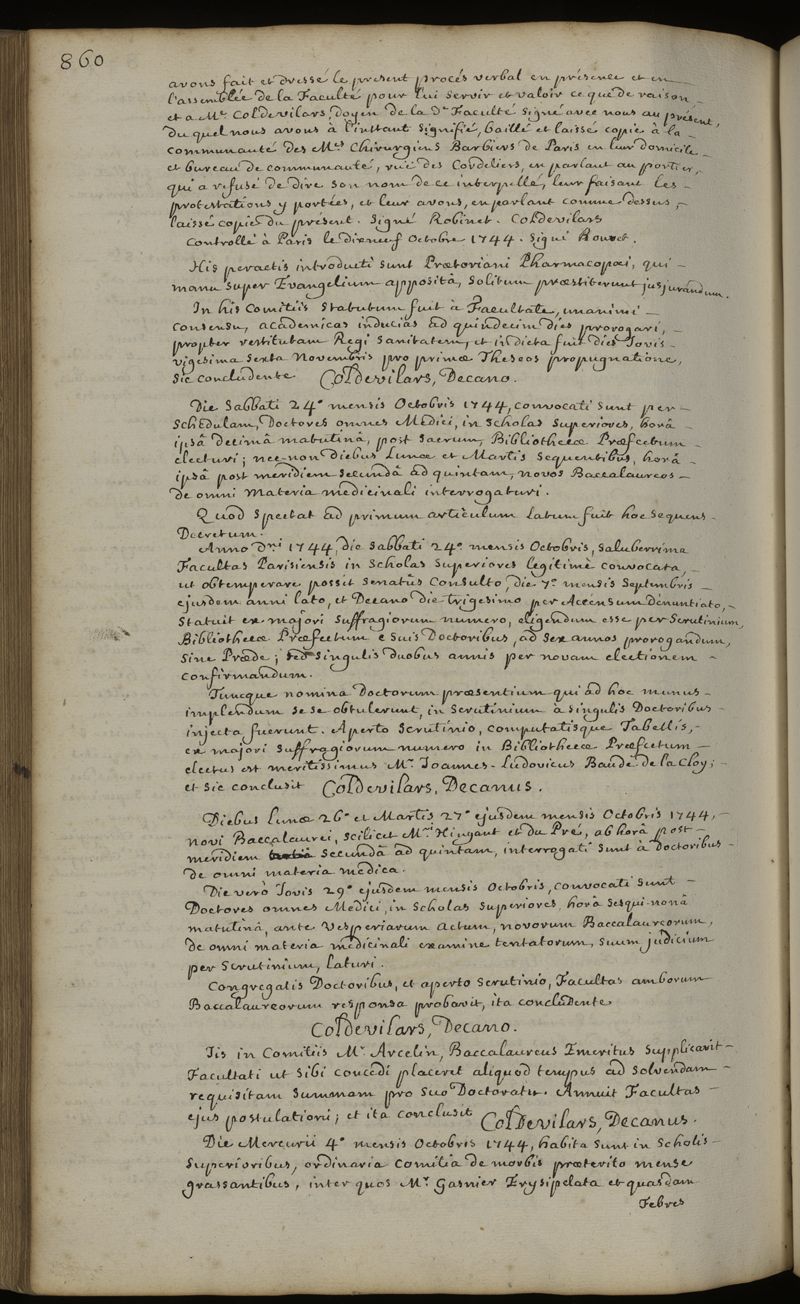 860
avons fait et dressé le present procés verbal en présence et en
l'assemblée de la Faculté pour lui servir et valoir ce que de raison
et a Mr. Coldevilars, doyen de la de. Faculté signé avec nous au présent,
Du quel nous avons à l'instant signifié, baillé et laissé copie à la
communauté des Mes. Chirurgiens Barbiers de Paris en leur domicile
et bureau de communauté, rue des Cordeliers, en parlant au portier,
qui a refusé de dire son nom de ce interpellé, leur faisant les
protestations y portées, et leur avons, en parlant comme dessus,
laissé copie du présent. Signé Robinet. Coldevilars
Controllé à Paris le dixneuf Octobre 1744. Signé
His peractis introducti sunt Prætoriani Pharmacopœi, qui
manu super Evangelium appositâ, solitum præstiterunt jusjurandum.
In his Comitiis statutum fuit à Facultate, unanimi
consensu, academicas inducias ad quindecim dies prorogari,
propter restitutam Regi sanitatem, et indicta fuit dies Jovis
vigesima sexta Novembris pro primæ Theseos propugnatione,
Sic concludente Coldevilars, Decano.
Die Sabbati 24a. mensis Octobris 1744, convocati sunt per
Schedulam, Doctores omnes Medici, in Scholas Superiores, horâ
ipsâ decimâ matutinâ, post sacrum, Bibliothecæ Præfectum
electuri; nec-non diebus Lunæ et Martis sequentibus, horâ
ipsâ post meridiem secundâ ad quintam, novos Baccalaureos
de omni materia medicinali interrogaturi.
Quod spectat ad primum articulum latum fuit hoc sequens
Decretum.
Anno Dni 1744, die Sabbati 24a. mensis Octobris, saluberrima
Facultas Parisiensis in Scholas Superiores legitimè convocata,
ut obtemperare possit Senatûs Consulto, die 7a. mensis Septembris
ejusdem anni lato, et Decano die trigesimo per Accensum denuntiato,
Statuit ex majori suffragiorum numero, eligendum esse per Scrutinium,
Bibliothecæ Præfectum e suis Doctoribus, ad sex annos prorogandum,
sine Præde; sed singulis duobus annis per novam electionem
confirmandum.
Tuncque nomina Doctorum præsentium qui ad hoc munus
implendum se se obtulerunt, in Scrutinium à singulis Doctoribus
injecta fuerunt. Aperto Scrutinio, computatisque Tabellis,
ex majori suffragiorum numero in Bibliothecæ Præfectum
electus est meritissimus Mr. Joannes-Ludovicus Baude de la Cloy;
et sic conclusit Coldevilars, Decanus.
Diebus Lunæ 26a. et Martis 27a. ejusdem mensis Octobris 1744,
novi Baccalaurei, scilicet Mri. Hingant et du Pré, ab horâ post
meridiem secundâ ad quintam, interrogati sunt à Doctoribus
de omni materia medica.
Die verò Jovis 29a. ejusdem mensis Octobris, convocati sunt
Doctores omnes Medici, in Scholas Superiores, horâ sesqui-nonâ
matutinâ, ante Vesperiarum actum, novorum Baccalaureorum,
de omni materia medicinali examine tentatorum, suum judicium
per scrutinium, laturi.
Congregatis Doctoribus, et aperto scrutinio, Facultas amborum
Baccalaureorum responsa probavit, ita concludente
Coldevilars, Decano.
Iis in Comitiis Mr. Arcelin, Baccalaureus Emeritus supplicavit
Facultati ut sibi concedi placeret aliquod tempus ad solvendam
requisitam summam pro suo Doctoratu. Annuit Facultas
ejus postulationi; et ita conclusit Coldevilars, Decanus.
Die Mercurii 4a. mensis Octobris 1744, habita sunt in Scholis
Superioribus, ordinaria Comitia de morbis præterito mense
grassantibus, inter quos Mr. Gasnier Erysipelata et quasdam
Febres